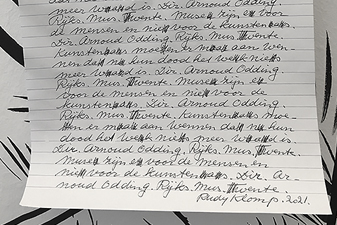 meer waard is. Dir. Arnoud Odding.
Rijks. Mus. Twente. Musea zijn er voor
de mensen en niet voor de kunstenaars.
Dir. Arnoud Odding. Rijks. Mus. Twente
Kunstenaars moeten er maar aan wen-
nen dat na hun dood het werk niets
meer waard is. Dir. Arnoud Odding.
Rijks. Mus. Twente. Musea zijn er
voor de mensen en niet voor de
kunstenaars. Dir. Arnoud Odding.
Rijks. Mus. Twente. Kunstenaars moe-
ten er maar aan wennen dat na hun
dood het werk niets meer waard is.
Dir. Arnoud Odding. Rijks. Mus. Twente.
Musea zijn er voor de mensen en
niet voor de kunstenaars. Dir. Ar-
noud Odding. Rijks. Mus. Twente.
Rudy Klomp. 2021.